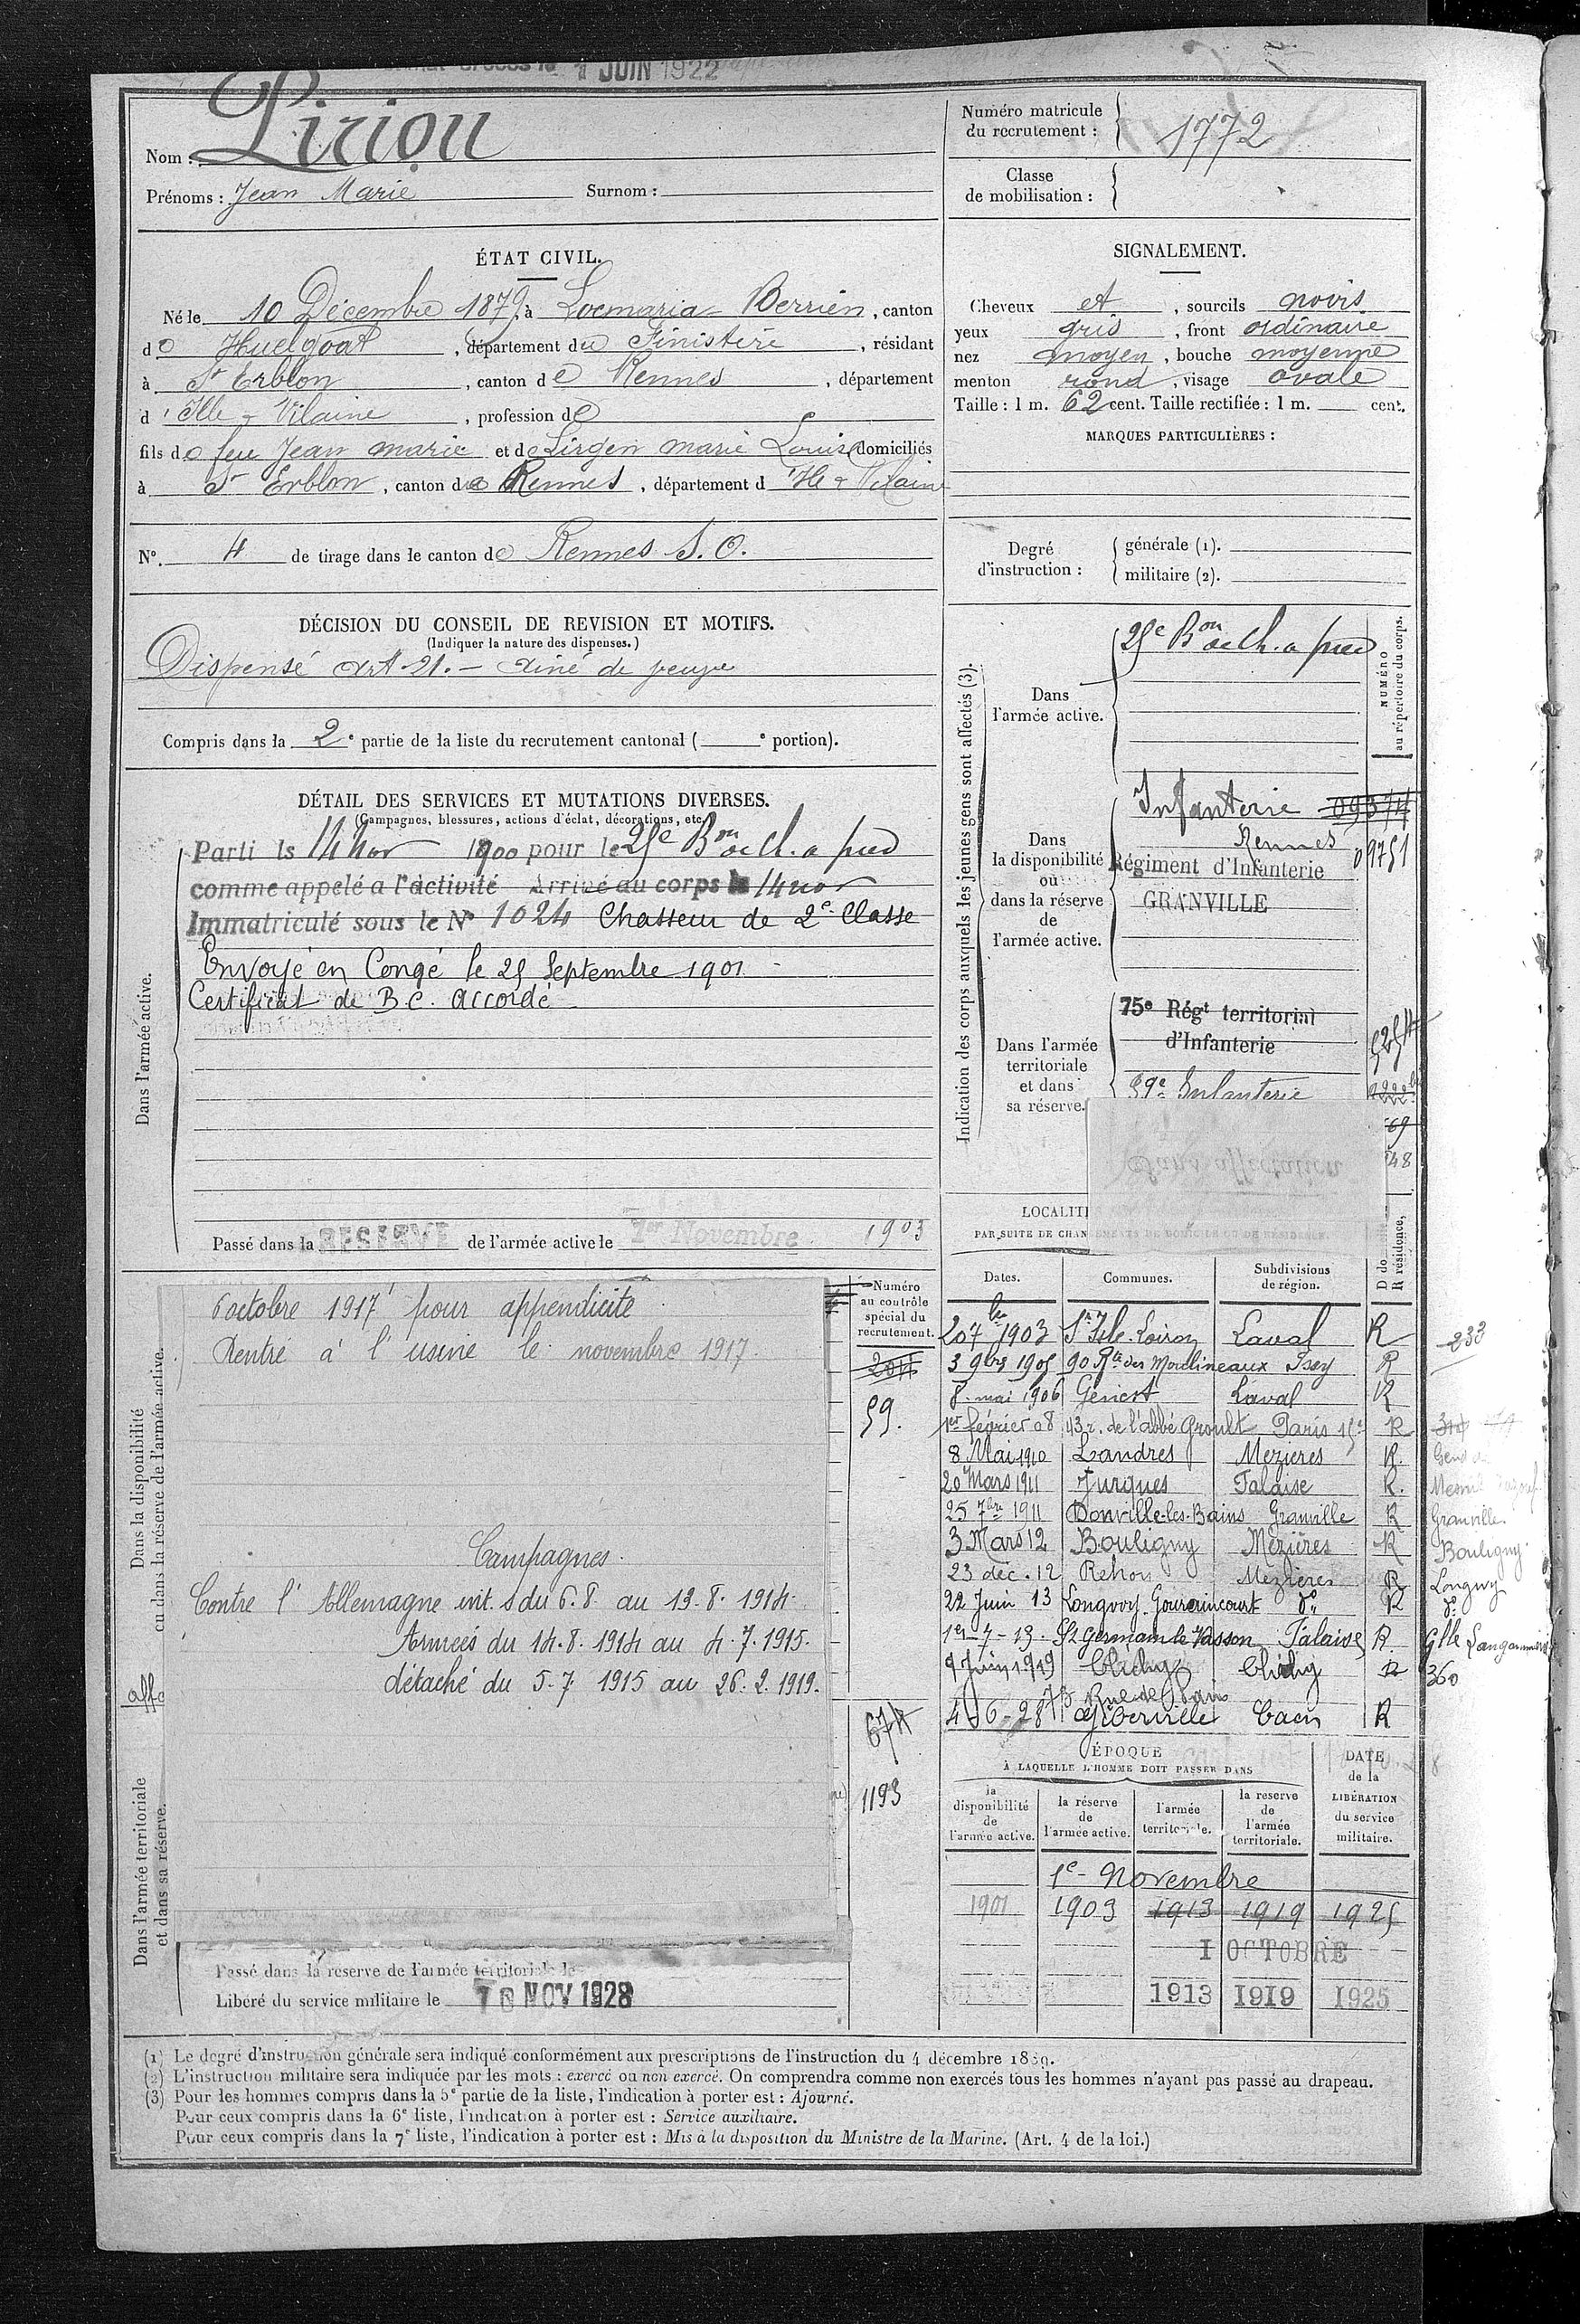 1 JUIN 1922
Nom : Piriou
Prénoms : Jean Marie Surnom :
Numéro matricule du recrutement : 1772
Classe de mobilisation :
ÉTAT CIVIL.
Né le 10 Décembre 1879, à Locmaria-Berrien, canton
de Huelgoat, département du Finistère, résidant
à St Erblon, canton de Rennes, département
d'Ille & Vilaine, profession de
fils de feu Jean marie et de Lirgen marie Louise domiciliés
à St Erblon, canton de Rennes, département d'Ille & Vilaine
N°. 4 de tirage dans le canton de Rennes S.O.
SIGNALEMENT.
Cheveux et, sourcils noirs
yeux gris, front ordinaire
nez moyen, bouche moyenne
menton rond, visage ovale
Taille : 1 m. 62 cent. Taille rectifiée : 1 m. cent.
MARQUES PARTICULIÈRES :
Degré d'instruction : générale (1).
militaire (2).
DÉCISION DU CONSEIL DE REVISION ET MOTIFS.
(Indiquer la nature des dispenses.)
Dispensé Art 21. - Ainé de veuve
Compris dans la 2e partie de la liste du recrutement cantonal ( e portion).
DÉTAIL DES SERVICES ET MUTATIONS DIVERSES.
(Campagnes, blessures, actions d'éclat, décorations, etc.)
Dans l'armée active.
Parti le 14 nov 1900 pour le 25e Bon de Ch. a pied
comme appelé a l'activité Arrivé au corps le 14 nov
Immatriculé sous le N° 1024 Chasseur de 2e Classe
Envoyé en Congé le 25 Septembre 1901
Certificat de B.C. accordé
Passé dans la RESERVE de l'armée active le 1er Novembre 1903
Indication des corps auxquels les jeunes gens sont affectés (3).
NUMÉRO au répertoire du corps.
Dans l'armée active.
25e Bon de Ch. a pied
Dans la disponibilité ou dans la réserve de l'armée active.
Infanterie 09374
Rennes 09751
Régiment d'Infanterie
GRANVILLE
Dans l'armée territoriale et dans sa réserve.
75e Régt territorial
d'Infanterie
39e Infanterie
69
48
LOCALITÉ
PAR SUITE DE CHANGEMENTS DE DOMICILE OU DE RESIDENCE.
Dates. Communes. Subdivisions de région. D domicile R résidence.
20 7bre 1903 St Isle-Loiron Laval R 233
3 9bre 1905 90 Rte des Moulineaux Issy R
8 mai 1906 Genest Laval R
1er février 08 43 r. de l'abbé Groult Paris 15e R
8 Mai 1910 Landres Mezieres R.
20 Mars 1911 Jurques Falaise R.
25 7bre 1911 Donville-les-Bains Granville R Granville
3 Mars 12 Bouligny Mézières R Bouligny
23 déc. 12 Rehon Mezieres R Longwy
22 Juin 13 Longwy. Gouraincourt do R do
1er-7-13. St Germain le Vasson Falaise R.
9 Juin 1919 Clichy Clichy R 360
73 Rue de Paris
4-6-28 Giberville Caen R
Dans la disponibilité ou dans la réserve de l'armée active.
6 octobre 1917 pour appendicite
Rentré à l'usine le novembre 1917
Campagnes.
Contre l'Allemagne int. s du 6.8. au 13.8.1914.
Armées du 14.8.1914 au 4.7.1915.
détaché du 5.7.1915 au 26.2.1919.
affe
Numéro au contrôle spécial du recrutement.
204
59.
674
1193
Dans l'armée territoriale et dans sa réserve.
Passé dans la reserve de l'armée territoriale le
Libéré du service militaire le 10 NOV 1928
ÉPOQUE
À LAQUELLE L'HOMME DOIT PASSER DANS
la disponibilité de l'armée active. la réserve de l'armée active. l'armée territoriale. la reserve de l'armée territoriale.
DATE de la LIBÉRATION du service militaire.
1e Novembre
1901 1903 1913 1919 1925
1 OCTOBRE
1913 1919 1925
(1) Le degré d'instruction générale sera indiqué conformément aux prescriptions de l'instruction du 4 décembre 1889.
(2) L'instruction militaire sera indiquée par les mots : exercé ou non exercé. On comprendra comme non exercés tous les hommes n'ayant pas passé au drapeau.
(3) Pour les hommes compris dans la 5e partie de la liste, l'indication à porter est : Ajourné.
Pour ceux compris dans la 6e liste, l'indication à porter est : Service auxiliaire.
Pour ceux compris dans la 7e liste, l'indication à porter est : Mis à la disposition du Ministre de la Marine. (Art. 4 de la loi.)